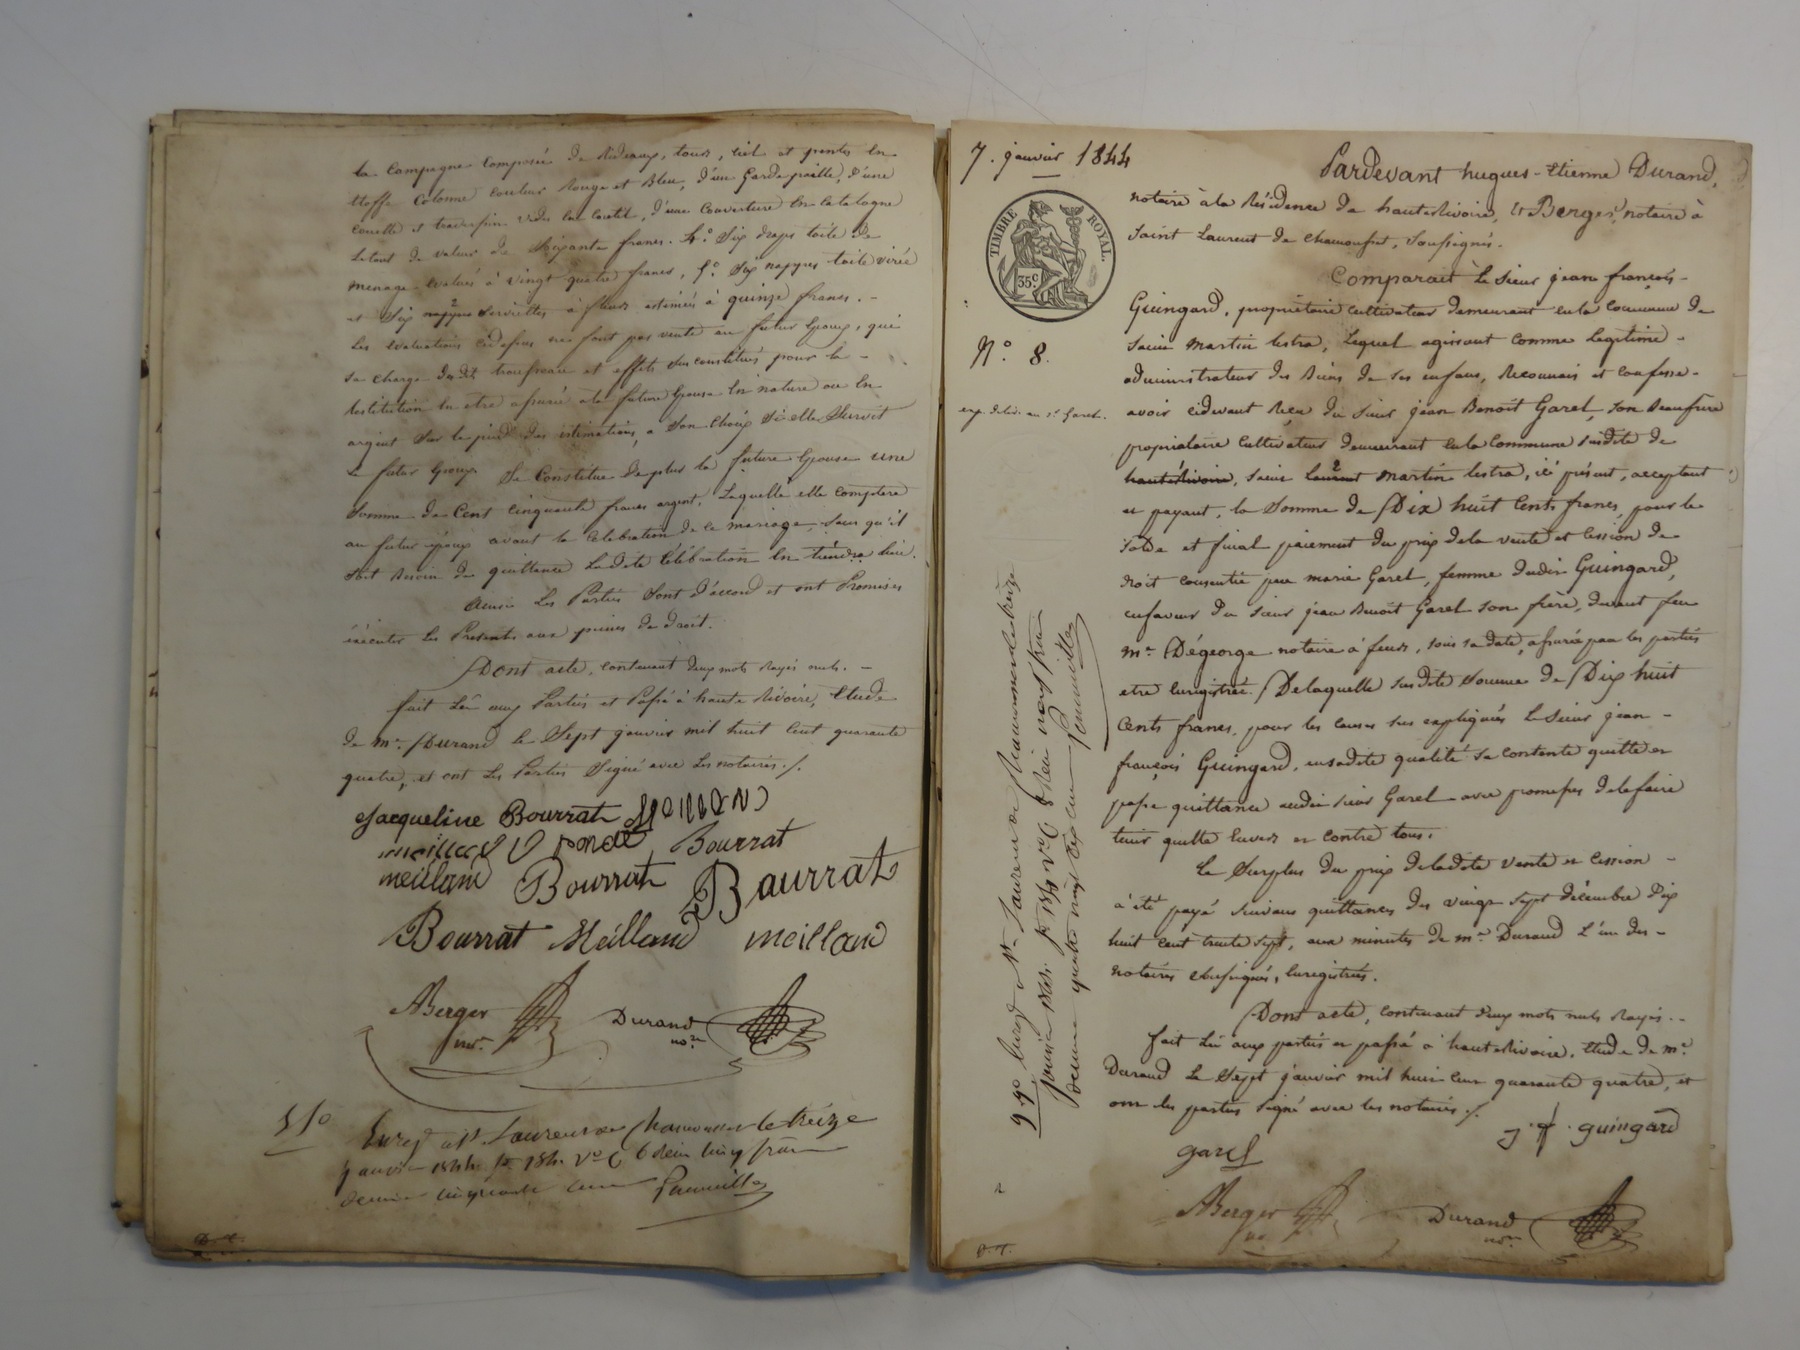 la Campagne Composée de Rideaux, tours, ciel et pentes en
étoffe Cotonne couleur Rouge et Bleu, d'un Garde paille, d'une
couette et traversin vides en coutil, d'une Couverture en Catalogne
le tout de valeur de Soixante francs. 4.° Six draps toile de
menage évalués à vingt quatre francs, 5.° Six nappes toile virée
et Six nappes Serviettes à fleurs estimées à quinze francs. -
Les évaluations cidessus ne font pas vente au futur époux, qui
se charge dudit trousseau et effets sus constitués pour la -
Restitution en etre assurée à la future épouse en nature ou en
argent sur le pied des estimations, a Son Choix Si elle Survit
Le futur époux Se Constitue de plus la future épouse une
Somme de Cent Cinquante francs argent, Laquelle elle comptera
au futur époux avant la Célébration de ce mariage, Sans qu'il
soit besoin de quittance Ladite Célébration en tiendra lieu.
Ainsi Les Parties Sont d'accord et ont Promises
éxécuter Les Présentes aux peines de droit.
Dont acte, contenant deux mots rayés nuls. -
fait Lû aux Parties et Passé à haute Rivoire, Etude
de me. Durand le Sept janvier mil huit Cent quarante
quatre, et ont Les Parties Signé avec Les notaires ./.
Jacqueline Bourrat
Bourrat
meilland Bourrat Baurrat
Bourrat Meilland meilland
ABerger Durand
nore. nore.
Enreg. à St. Laurent de Chamousset le treize
janvier 1844 fo. 184 Vo C 6 Reçu cinq francs
decime cinquante cent
D. T.
7. janvier 1844
TIMBRE ROYAL.
35 C.
N.° 8.
exp. deliv. au sr. Garel.
Pardevant hugues-Etienne Durand,
notaire à la Résidence de hauteRivoire, Et Berger, notaire à
Saint Laurent de Chamousset, Soussignés.
Comparait le Sieur jean françois -
Guingard, propriétaire Cultivateur demeurant en la Commune de
Saint Martin lestra, Lequel agissant comme legitime -
administrateur des Biens de Ses enfans, Reconnais et Confesse -
avoir cidevant Reçu du Sieur jean Benoît Garel, Son Beaufrère
propriétaire Cultivateur demeurant en la Commune Susdite de
hauteRivoire, Saint Laurent Martin lestra, ici présent, acceptant
et payant, la Somme de Dix huit Cents francs, pour le
solde et final paiement du prix de la vente et Cession de
Droit consentie par marie Garel, femme dudit Guingard,
enfaveur du Sieur jean Benoît Garel Son frère, devant feu
me. Dégeorge notaire à feurs, sous sa date, assurée par les parties
etre Enregistrée. De laquelle Susdite Somme de Dix huit
Cents francs, pour les Causes Sus expliquées Le Sieur jean -
françois Guingard, ensadite qualité Se Contente quitte et
passe quittance audit Sieur Garel - avec promesses de le faire
tenir quitte Envers et contre tous.
Le Surplus du prix de ladite vente et Cession -
a été payé Suivant quittances des vingt Sept décembre Dix
huit Cent trente Sept, aux minutes de me. Durand L'un des -
notaires Soussignés, Enregistrées.
Dont acte, contenant deux mots nuls Rayés. -
fait Lû aux parties et passé à hauteRivoire, Etude de me.
Durand Le Sept janvier mil huit Cent quarante quatre, et
ont les parties Signé avec les notaires ./.
garel j f. guingard
ABerger Durand
no. nore.
D. T.
Enreg. à St. Laurent de Chamousset le treize
janvier 1844 fo. 184 Vo C 8 Reçu neuf francs
decime quatre vingt dix cent